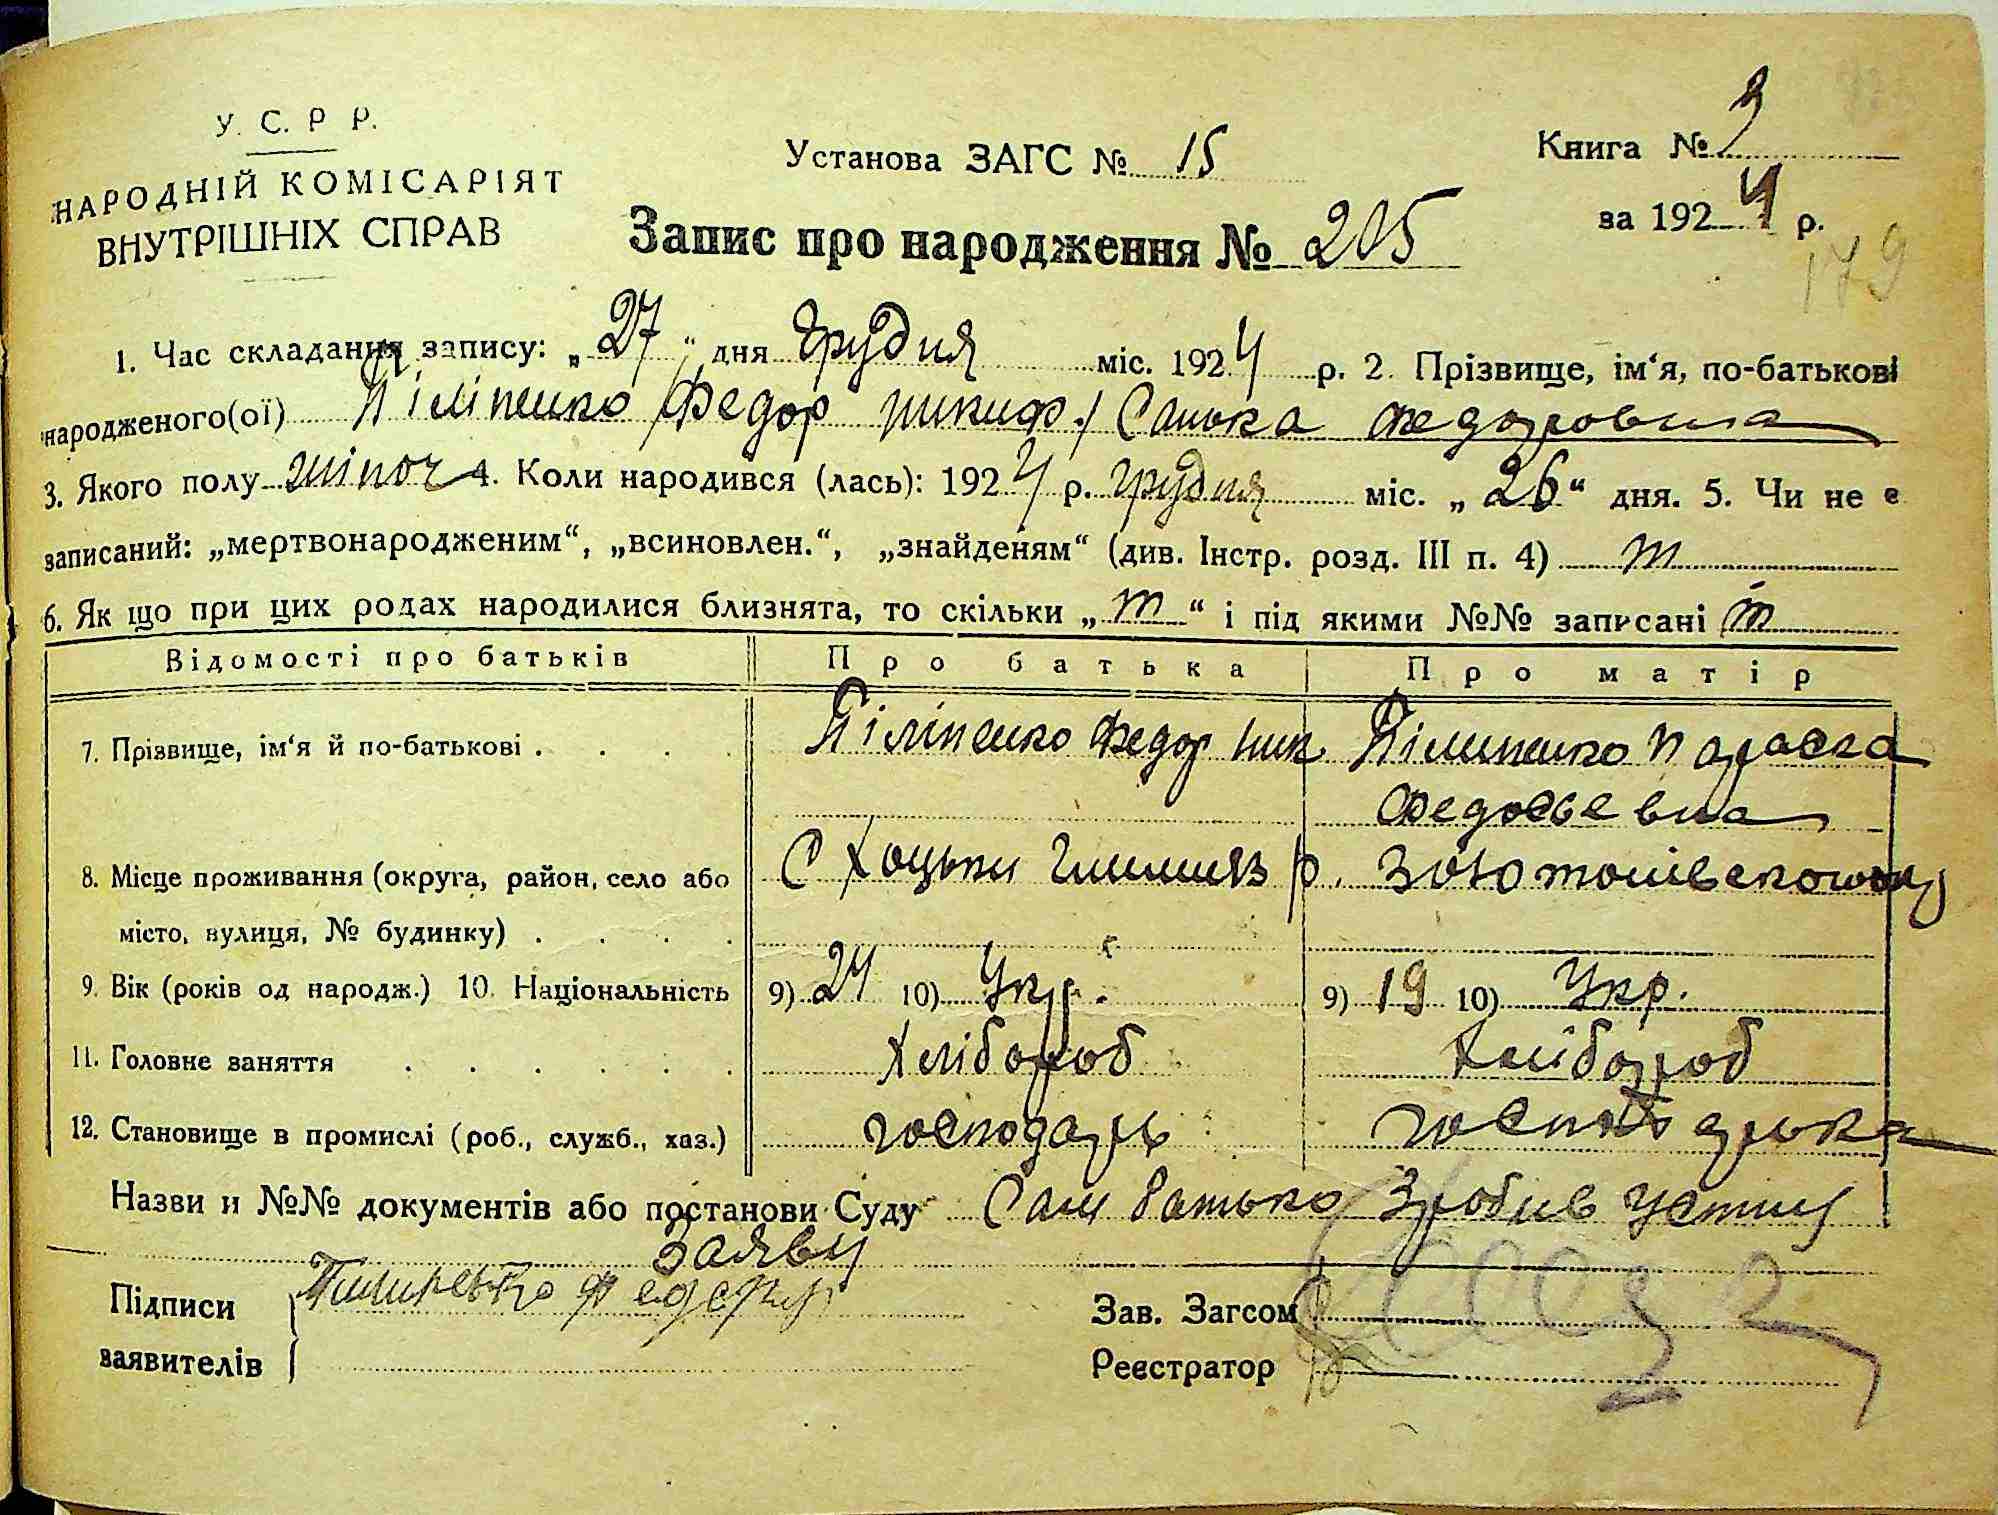 У. С. Р Р.
НАРОДНІЙ КОМІСАРІЯТ
ВНУТРІШНІХ СПРАВ
Установа ЗАГС № 15
Книга № 3
за 1924 р.
179
Запис про народження № 205
1. Час складання запису: „27" дня Грудня міс. 1924 р. 2. Прізвище, ім'я, по-батькові
народженого(ої) Піліпенко Федор Никиф. / Санька Федоровна
3. Якого полу жіноч 4. Коли народився (лась): 1924 р. Грудня міс. „26" дня. 5. Чи не є
записаний: „мертвонародженим", „всиновлен.", „знайденям" (див. Інстр. розд. III п. 4)
6. Як що при цих родах народилися близнята, то скільки „ " і під якими №№ записані
Відомості про батьків Про батька Про матір
7. Прізвище, ім'я й по-батькові . . . . Піліпенко Федор Ник. Піліпенко Параска
Федосьевна
8. Місце проживання (округа, район, село або С Хоцьки р. Золотонівскої
місто, вулиця, № будинку) . . . .
9. Вік (років од народж.) 10. Національність 9) 24 10) Укр. 9) 19 10) Укр.
11. Головне заняття . . . . . . Хлібороб Хлібороб
12. Становище в промислі (роб., служб., хаз.) господарь господарька
Назви и №№ документів або постанови Суду Сам батько Зробив Устну
Заяву
Підписи Пилипенько Федор
заявителів
Зав. Загсом
Реєстратор